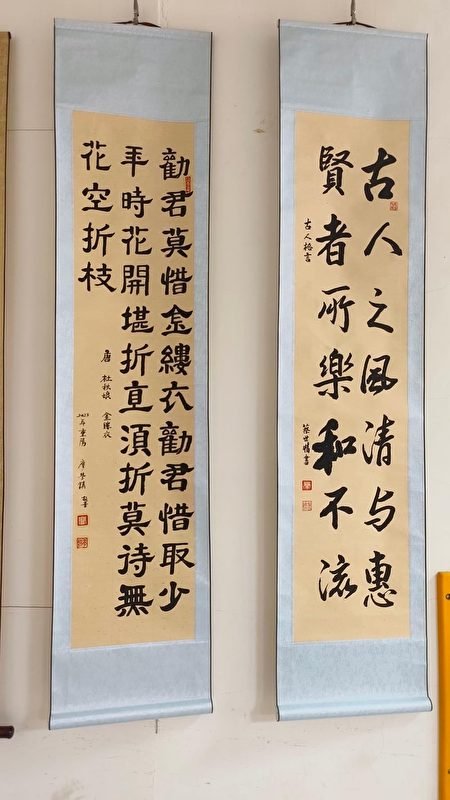 古人之風清与惠
賢者所樂和不流
古人格言
勸君莫惜金縷衣勸君惜取少
年時花開堪折直須折莫待無
花空折枝
唐 杜秋娘 金縷衣
2023年重陽